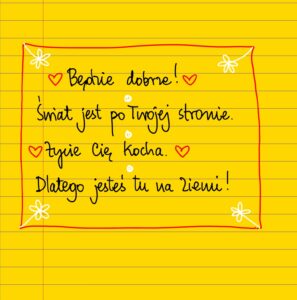 Będzie dobrze!
Świat jest po Twojej stronie.
Życie Cię kocha.
Dlatego jesteś tu na Ziemi!